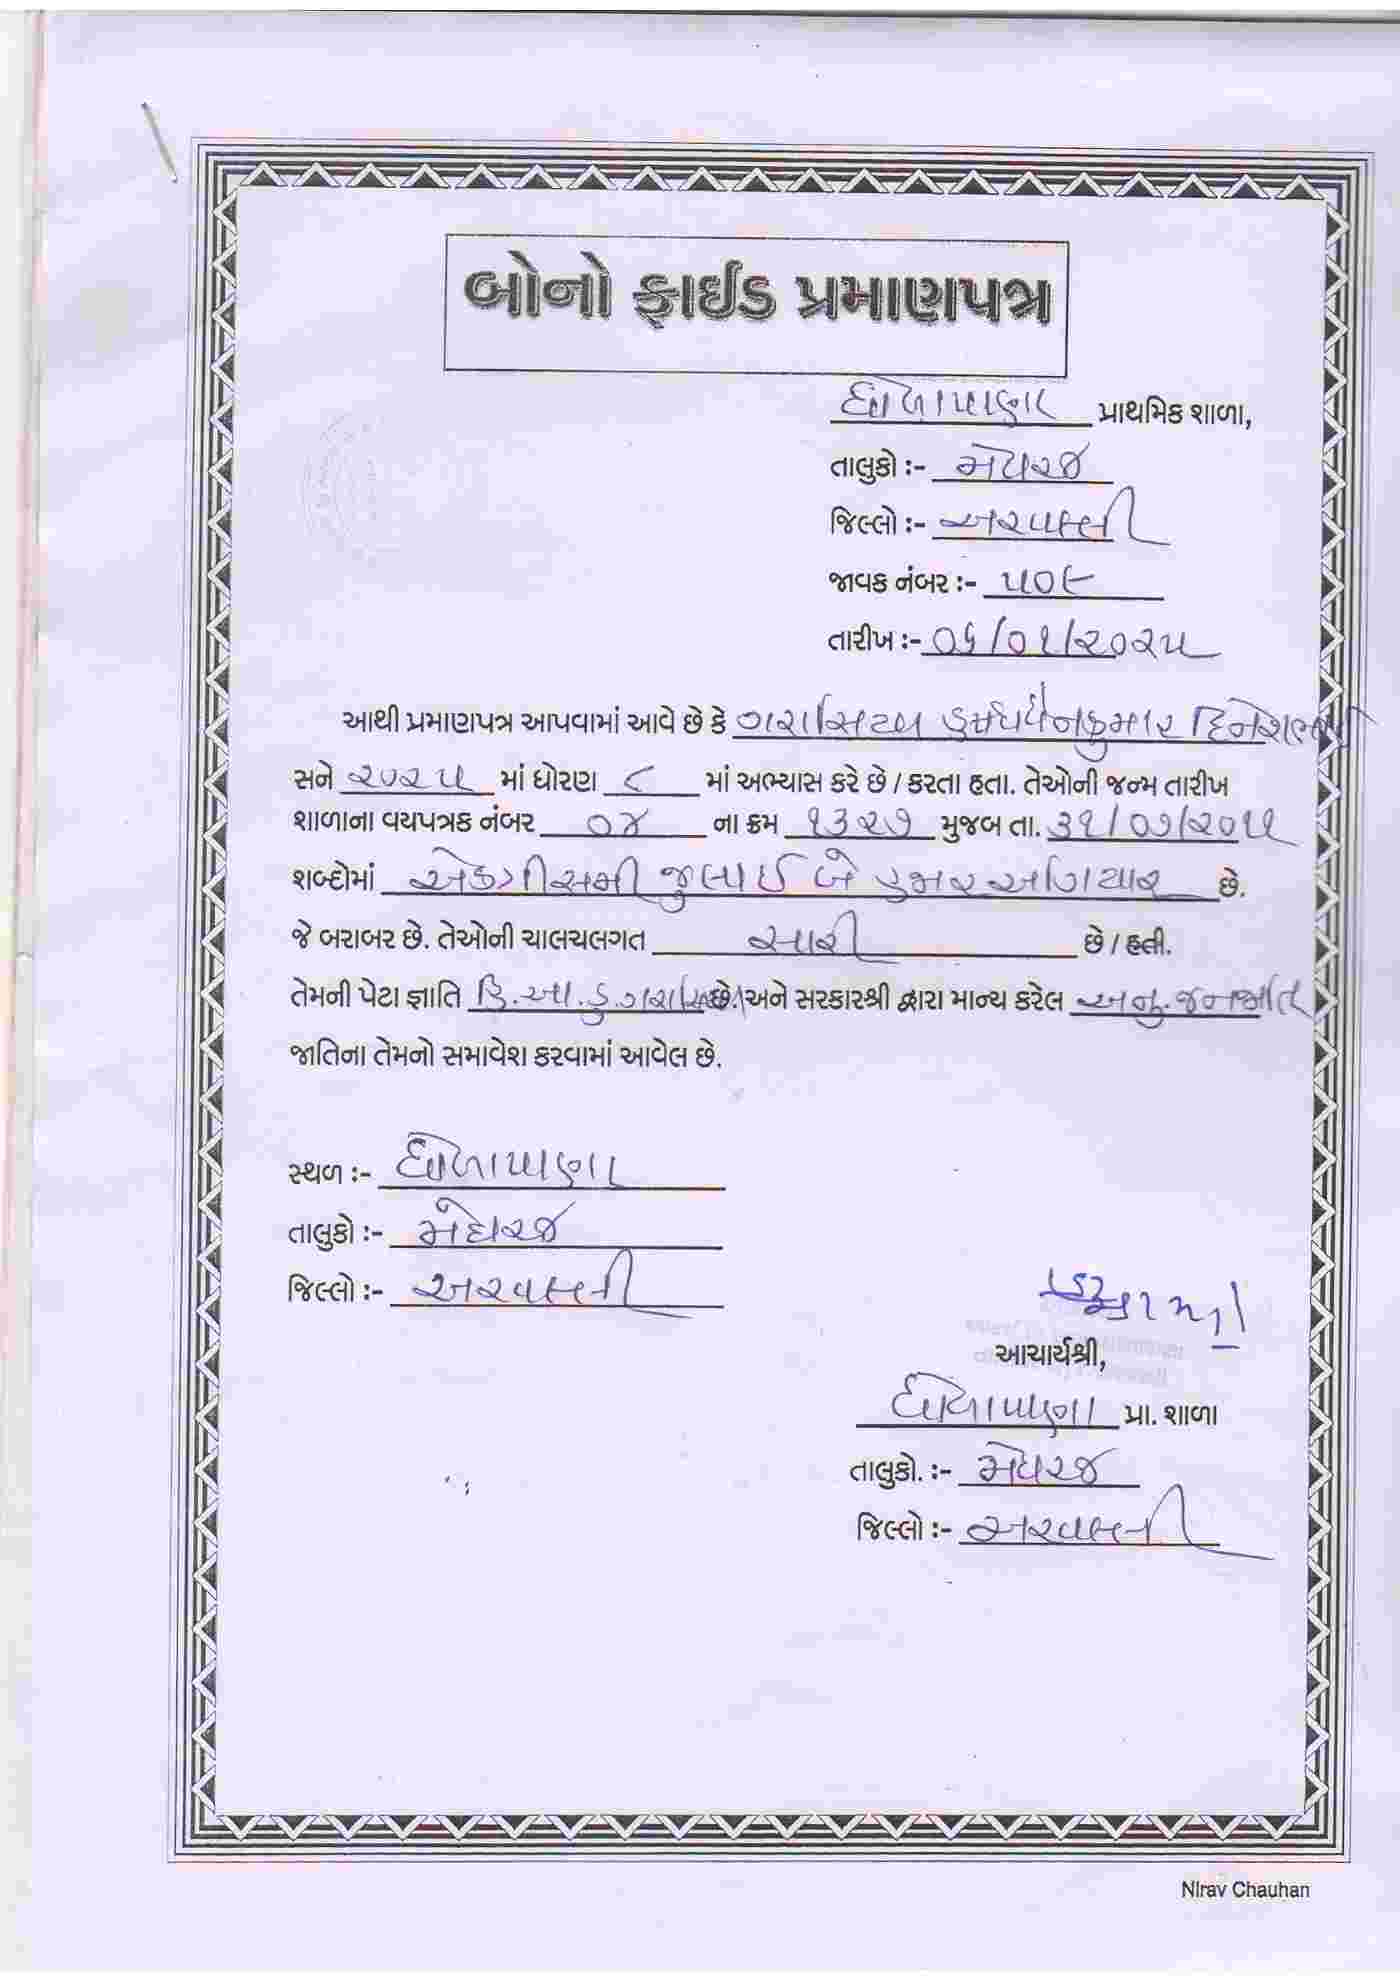 બોનો ફાઈડ પ્રમાણપત્ર
ધોળાપાણા પ્રાથમિક શાળા,
તાલુકો :- મેઘરજ
જિલ્લો :- અરવલ્લી
જાવક નંબર :- ૫૦૯
તારીખ :- ૦૬/૦૧/૨૦૨૫
આથી પ્રમાણપત્ર આપવામાં આવે છે કે ગરાસિયા
સને ૨૦૨૫ માં ધોરણ ૮ માં અભ્યાસ કરે છે / કરતા હતા. તેઓની જન્મ તારીખ
શાળાના વયપત્રક નંબર ૦૪ ના ક્રમ ૧૩૨૭ મુજબ તા. ૩૧/૦૭/૨૦૧૧
શબ્દોમાં એકત્રીસમી જુલાઈ બે હજાર અગિયાર છે.
જે બરાબર છે. તેઓની ચાલચલગત સારી છે / હતી.
તેમની પેટા જ્ઞાતિ હિ.આ.ડું ગરાસિયા છે. અને સરકારશ્રી દ્વારા માન્ય કરેલ અનુ.જનજાતિ
જાતિના તેમનો સમાવેશ કરવામાં આવેલ છે.
સ્થળ :- ધોળાપાણા
તાલુકો :- મેઘરજ
જિલ્લો :- અરવલ્લી
આચાર્યશ્રી,
ધોળાપાણા પ્રા. શાળા
તાલુકો. :- મેઘરજ
જિલ્લો :- અરવલ્લી
Nirav Chauhan